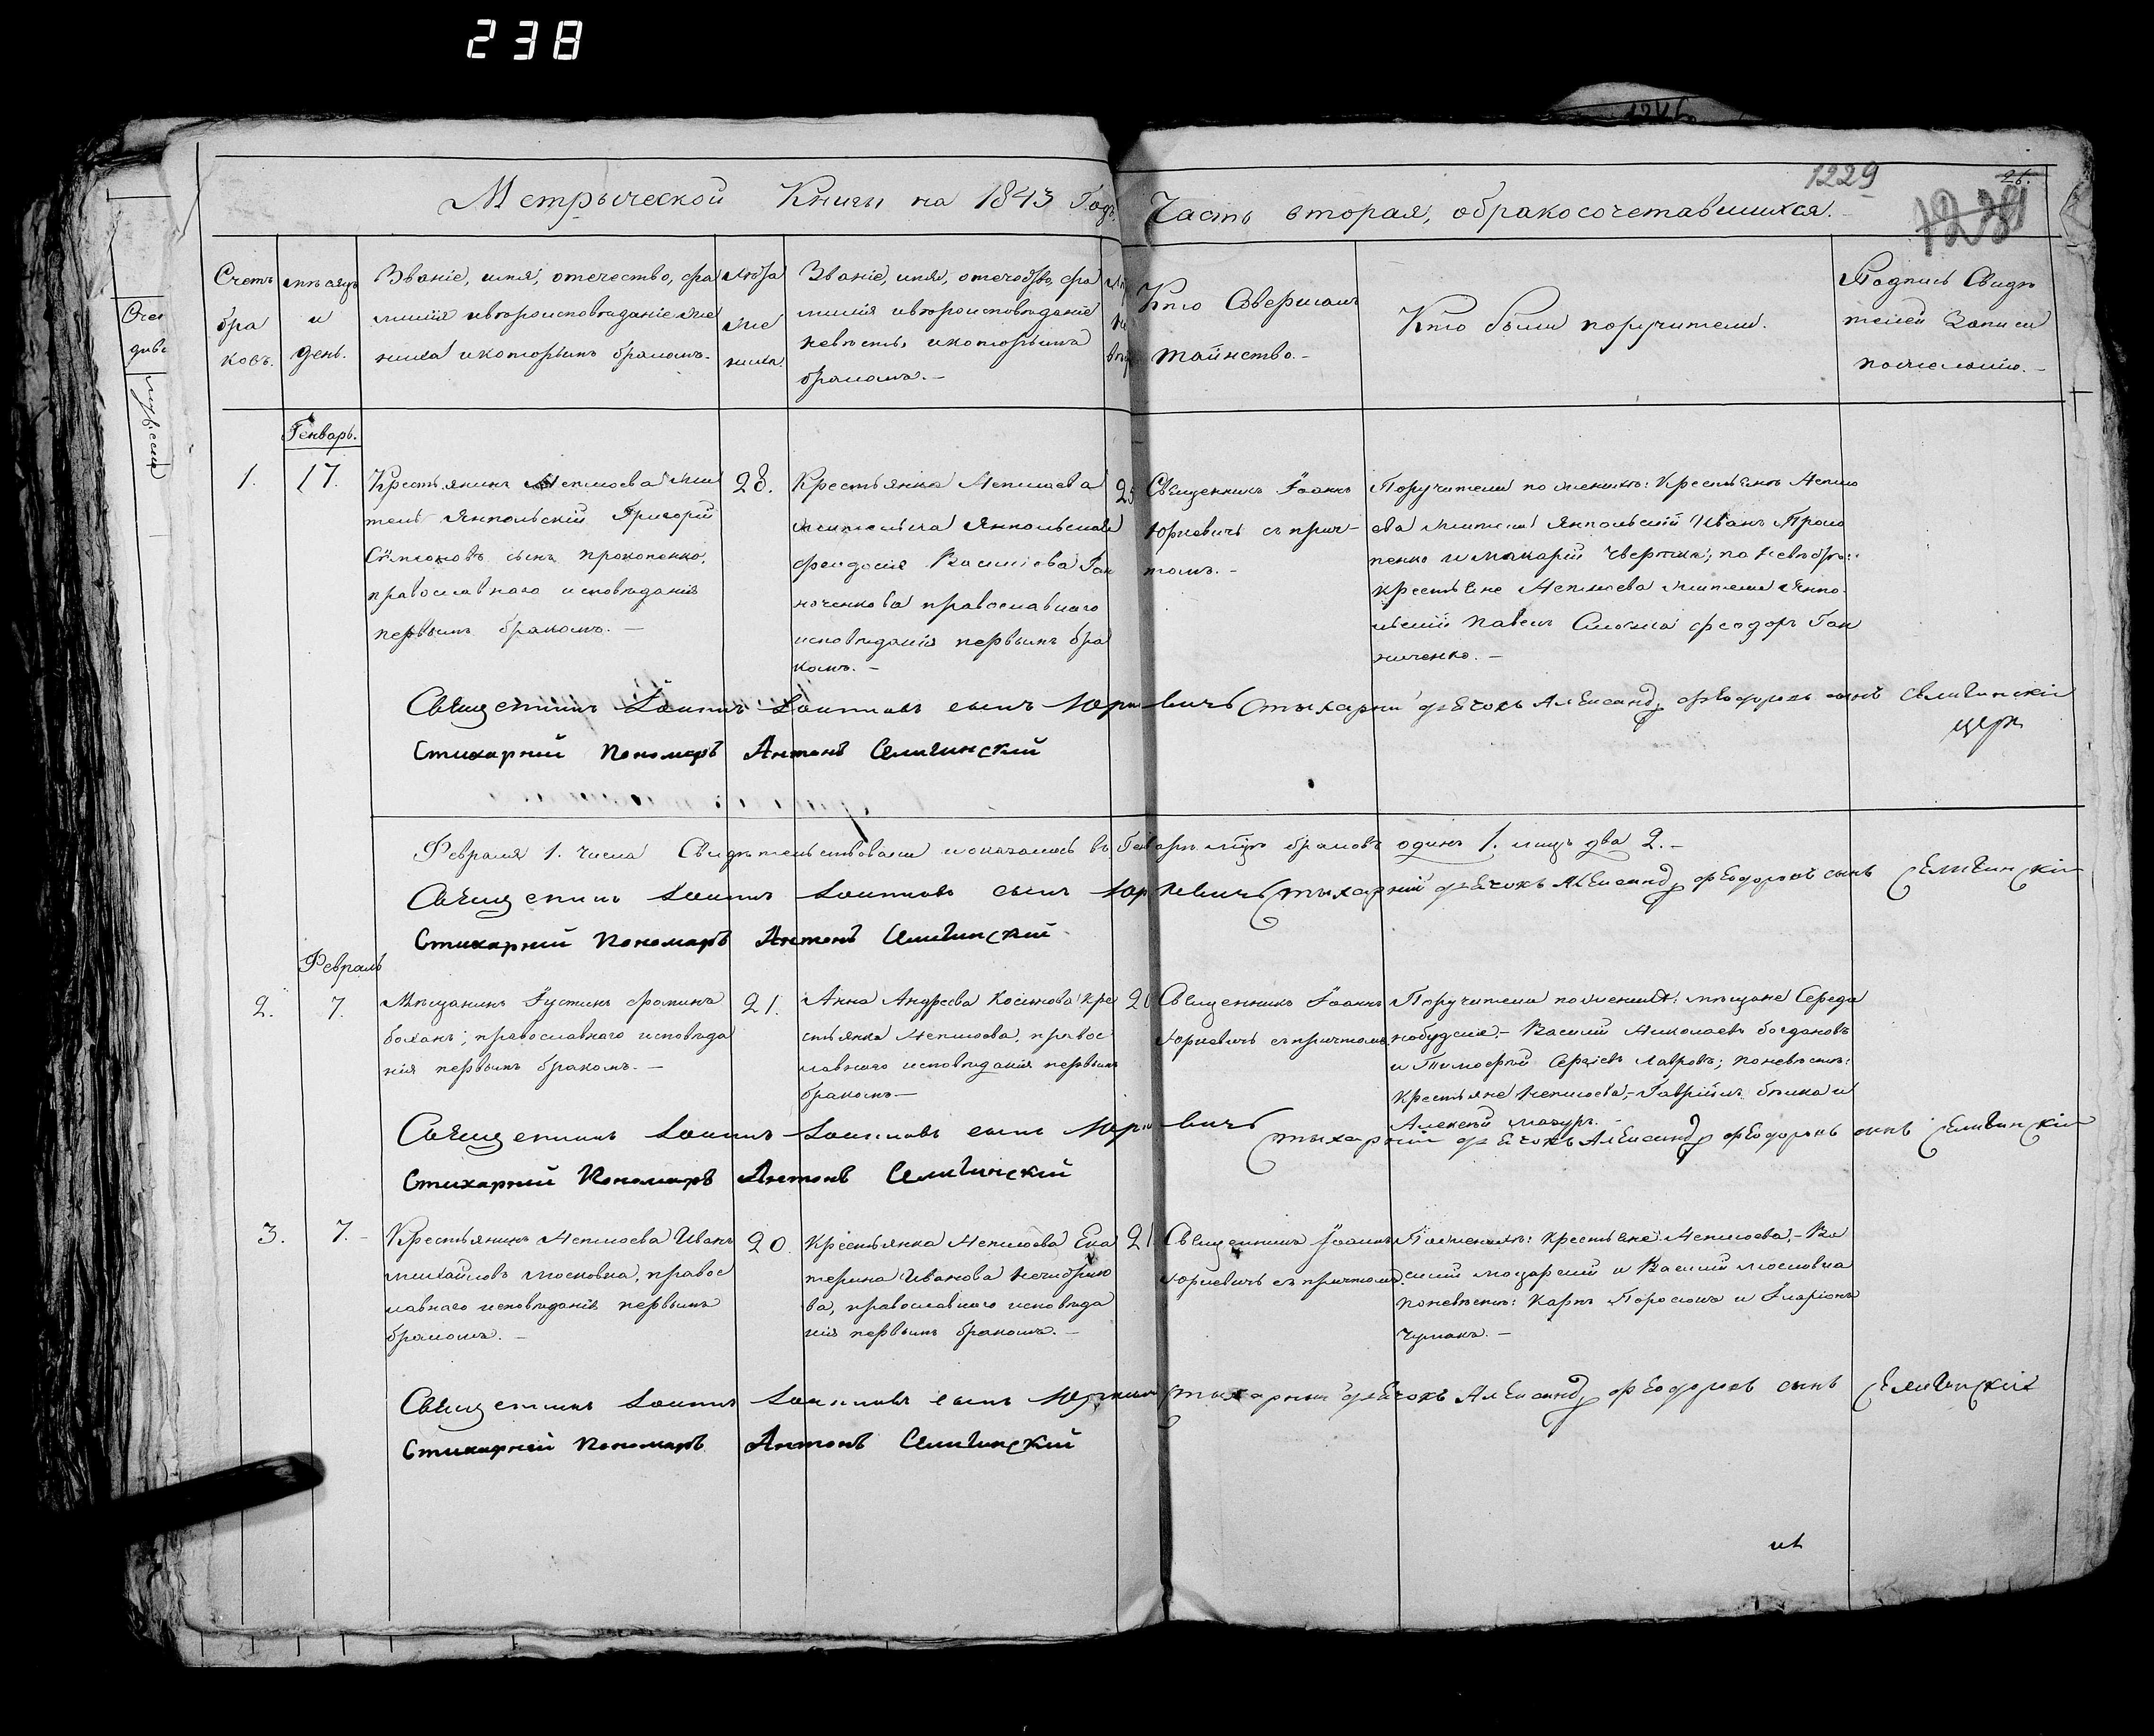 238
1229
Метрической Книги на 1843 Годъ
Часть вторая, обракосочетавшихся.
Счетъ
бра
ковъ.
мѣсяцъ
и
день.
Званіе, имя, отечество, фа
милія ивѣроисповѣданіе же
ниха икоторымъ бракомъ.
лѣта
же
ниха.
Званіе, имя, отечество, фа
милія ивѣроисповѣданіе
невѣсты, икоторымъ
бракомъ.-
Кто Совершалъ
таинство.-
Кто были поручители.
Подпись Свидѣ
телей Записи
пожеланію.-
Генварь.
1.
17.
Крестьянинъ Неплюева жи
тель Янпольскій Григорій
сынъ Прокопенко,
православнаго исповѣданія
первымъ бракомъ.-
28.
Крестьянка Неплюева
жительница Янпольская
Феодосія Василіева Ган
ноченкова православнаго
исповѣданія первымъ бра
комъ.-
Священникъ Іоаннъ
Юркевичъ съ прич-
томъ.-
Поручители по женихѣ: Крестьянъ Неплю
ева жители Янпольскій Иванъ Проко
пенко и Макарій Чвертка; по невѣстѣ:
крестьяне Неплюева жители Янпо
льскій Павелъ Феодоръ Ган
ниченко.-
Священникъ Іоаннъ Іоанновъ сынъ Юркевичъ Стихарній дьячокъ Александръ Феодоровъ сынъ Селитинскій
Стихарній Пономарь Антонъ Селитинский
Февраля 1. числа Свидѣтельствовали иоказалось въ Генварѣ мцѣ браковъ одинъ 1. лицъ два 2.-
Священникъ Іоаннъ Іоанновъ сынъ Юркевичъ Стихарній дьячокъ Александръ Феодоровъ сынъ Селитинскій
Стихарній Пономарь Антонъ Селитинский
Февраль
2.
7.
Мѣщанинъ Іустинъ Фомичъ
Боханъ; православнаго исповѣда
нія первымъ бракомъ.-
21.
Анна Андреева Косикова Кре
стьянка Неплюева, правос
лавнаго исповѣданія первымъ
бракомъ-
Священникъ Іоаннъ
Юркевичъ съ причтомъ.
Поручители поженихѣ: мѣщане Середи
нобудскіе,- Василій Николаевъ Богдановъ
и Тимофей Сергѣевъ Лавровъ; поневѣстѣ:
Крестьяне Неплюева,- Гавріилъ и
Алексѣй Мазуръ.-
Священникъ Іоаннъ Іоанновъ сынъ Юркевичъ Стихарній дьячокъ Александръ Феодоровъ сынъ Селитинскій
Стихарній Пономарь Антонъ Селитинский
3.
7.-
Крестьянинъ Неплюева Иванъ
Михайловъ Московка, правос
лавнаго исповѣданія первымъ
бракомъ.-
20.
Крестьянка Неплюева Ека
терина Иванова
ва, православнаго исповѣда
нія первымъ бракомъ.-
21
Священникъ Іоаннъ
Юркевичъ съ причтомъ.
Поженихѣ: крестьяне Неплюева,- Ва
силій и Василій Московка
поневѣстѣ: Карпъ и Иларіонъ
Чумакъ.-
Священникъ Іоаннъ Іоанновъ сынъ Стихарный дьячокъ Александръ Феодоровъ сынъ Селитинскій
Стихарній Пономарь Антонъ Селитинский